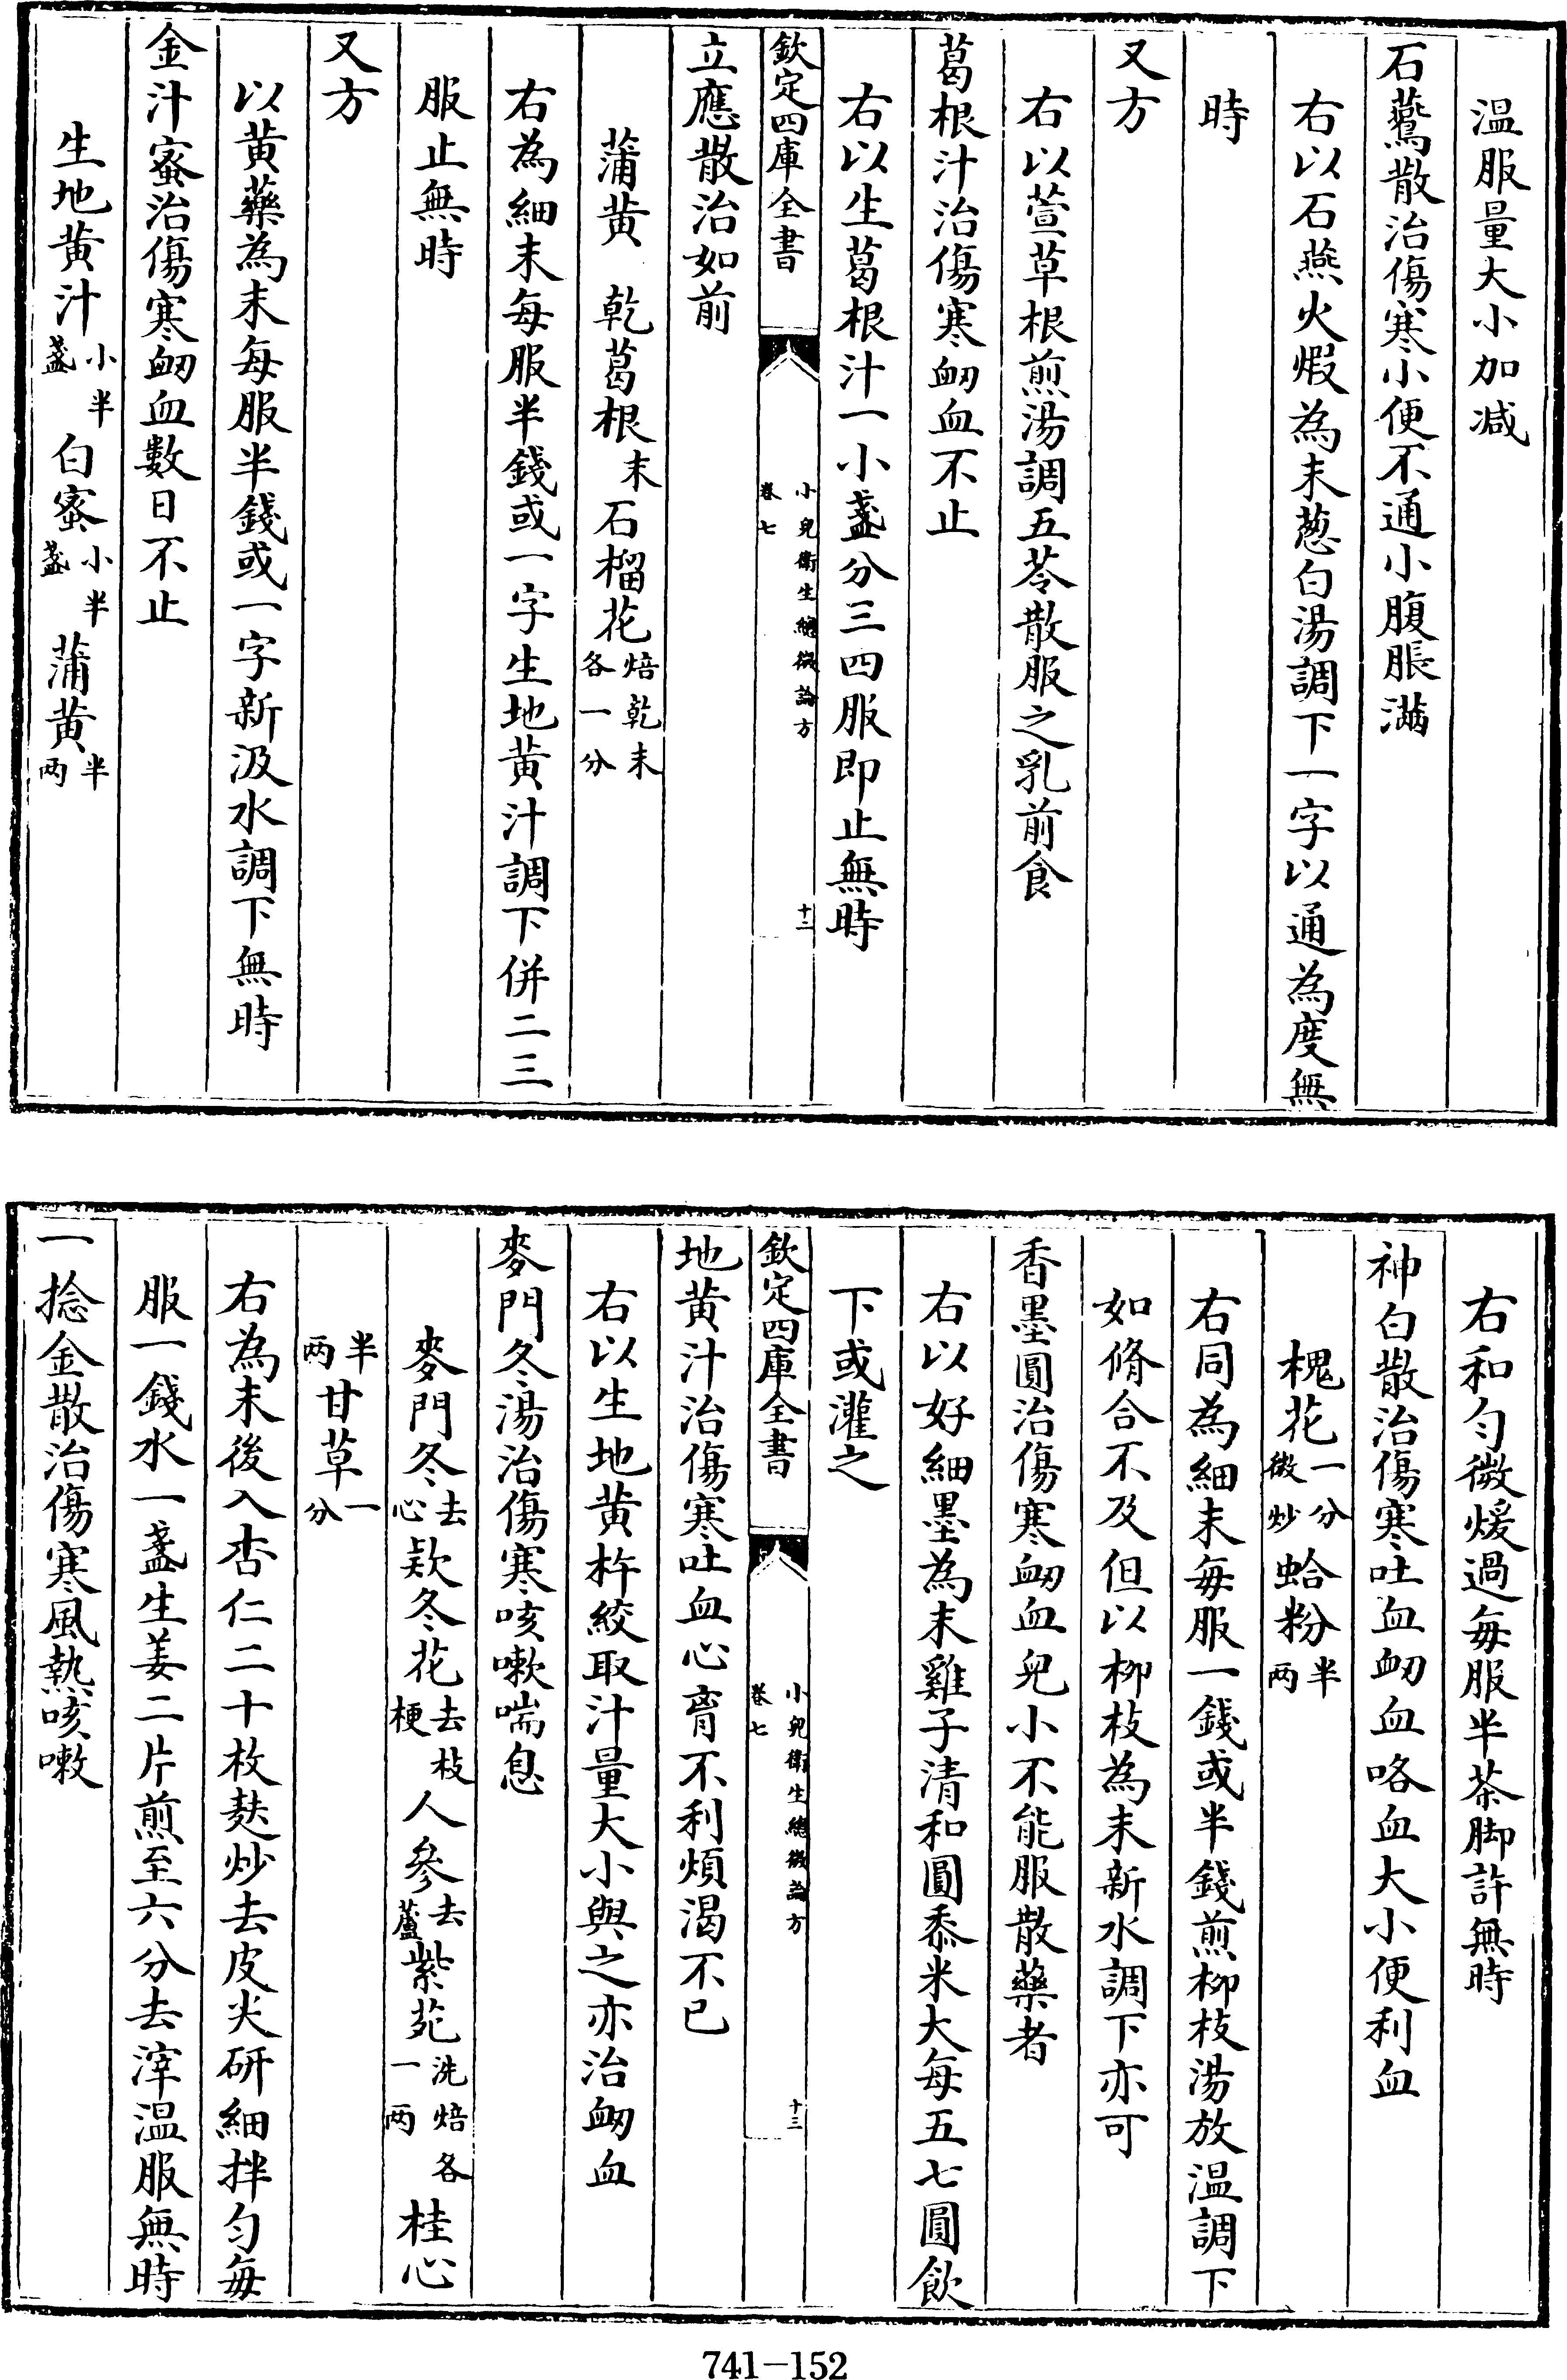 溫服量大小加減
石鷰散治傷寒小便不通小腹脹滿
右以石燕火煅為末葱白湯調下一字以通為度無
時
又方
右以萱草根煎湯調五苓散服之乳前食
葛根汁治傷寒衂血不止
右以生葛根汁一小盞分三四服即止無時
欽定四庫全書 小兒衛生總微論方 卷七 十二
立應散治如前
蒲黄 乾葛根末 石榴花焙乾末各一分
右為細末每服半錢或一字生地黄汁調下併二三
服止無時
又方
以黄藥為末每服半錢或一字新汲水調下無時
金汁蜜治傷寒衂血數日不止
生地黄汁小半盞 白蜜小半盞 蒲黄半两
右和勻微煖過每服半茶脚許無時
神白散治傷寒吐血衂血咯血大小便利血
槐花一分微炒 蛤粉半两
右同為細末每服一錢或半錢煎柳枝湯放溫調下
如脩合不及但以柳枝為末新水調下亦可
香墨圓治傷寒衂血兒小不能服散藥者
右以好細墨為末雞子清和圓黍米大每五七圓飲
下或灌之
欽定四庫全書 小兒衛生總微論方 卷七 十三
地黄汁治傷寒吐血心肓不利煩渴不已
右以生地黄杵絞取汁量大小與之亦治衂血
麥門冬湯治傷寒咳嗽喘息
麥門冬去心 欵冬花去枝梗 人參去蘆 紫苑洗焙各一两 桂心
半两 甘草一分
右為末後入杏仁二十枚麸炒去皮尖研細拌勻每
服一錢水一盞生姜二片煎至六分去滓溫服無時
一捻金散治傷寒風熱咳嗽
741-152